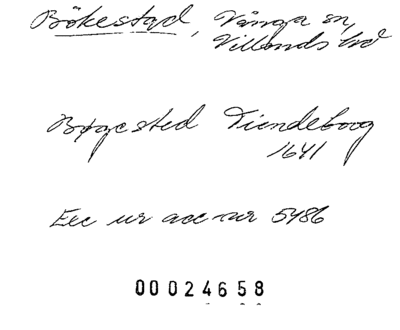 Bökestad, Vånga sn,
Villands hd
Bøgested Tiendeboog
1641
Exc ur acc nr 5486
00024658